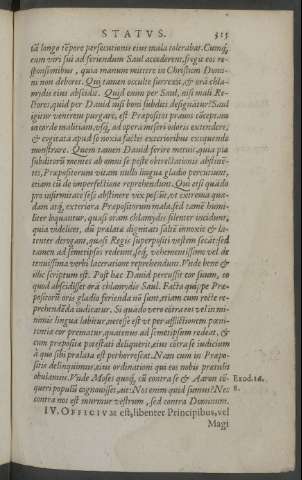 STATVS. 315
tā longo tēpore persecutionis eius mala tolerabat. Cumq;
eum viri sui ad feriendum Saul accederent, fregit eos re-
sponsionibus, quia manum mittere in Christum Domi-
ni non deberet. Qui tamen occulte surrexit, & orā chla-
mydis eius abscidit. Quid enim per Saul, nisi mali Re-
ctores, quid per Dauid nisi boni subditi designātur? Saul
igitur ventrem purgare, est Præpositos prauos cōceptam
in corde malitiam, vsq; ad opera miseri odoris extendere;
& cogitata apud se noxia factis exterioribus exequendo
monstrare. Quem tamen Dauid ferire metuit, quia pia
subditorū mentes ab omni se peste obtrectationis abstinē-
tes, Præpositorum vitam nullo linguæ gladio percutiunt,
etiam cū de imperfectione reprehendunt. Qui etsi quādo
pro infirmitate sese abstinere vix possūt, vt extrema quæ-
dam atq; exteriora Præpositorum mala, sed tamē humi-
liter loquantur, quasi oram chlamydis silenter incidunt,
quia videlicet, dū prælatæ dignitati saltē innoxie & la-
tenter derogant, quasi Regis superpositi vestem fœdāt; sed
tamen ad semetipsos redeunt, seq; vehementissime vel de
tenuissima verbi laceratione reprehendunt. Vnde bene &
illic scriptum est. Post hæc Dauid percussit cor suum, eo
quod abscidisset orā chlamydis Saul. Facta quippe Præ-
positorū oris gladio ferienda nō sunt, etiam cum recte re-
prehendēda iudicantur. Si quādo vero cōtra eos vel in mi-
nimis lingua labitur, necesse est vt per afflictionem pœni-
tentiæ cor prematur, quatenus ad semetipsum redeat, &
cum præpositæ potestati deliquerit, eius cōtra se iudicium
à quo sibi prælata est perhorrescat. Nam cum in Præpo-
sitis delinquimus, eius ordinationi qui eos nobis prætulit
obuiamus. Vnde Moses quoq; cū contra se & Aaron cō-
queri populū cognouisset, ait: Nos enim quid sumus? Nec
contra nos est murmur vestrum, sed contra Dominum.
Exod. 16.
8.
IV. OFFICIVM est, libenter Principibus, vel
Magi